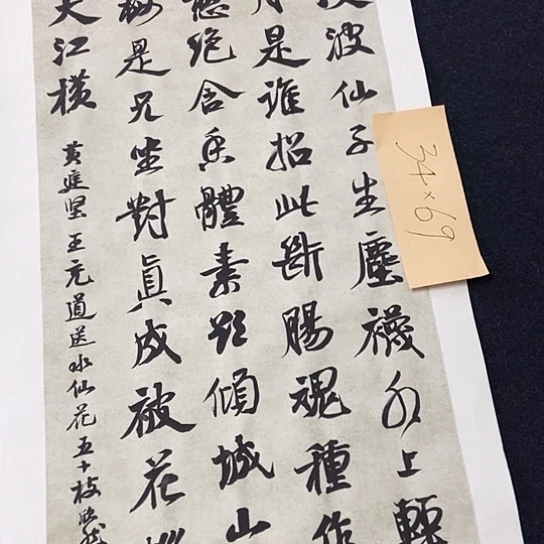 波仙子生塵襪水上輕
是誰招此斷腸魂種作
絕含香體素欲傾城山
梅是兄坐對真成被花
大江橫
黃庭堅王充道送水仙花五十枝
34×69